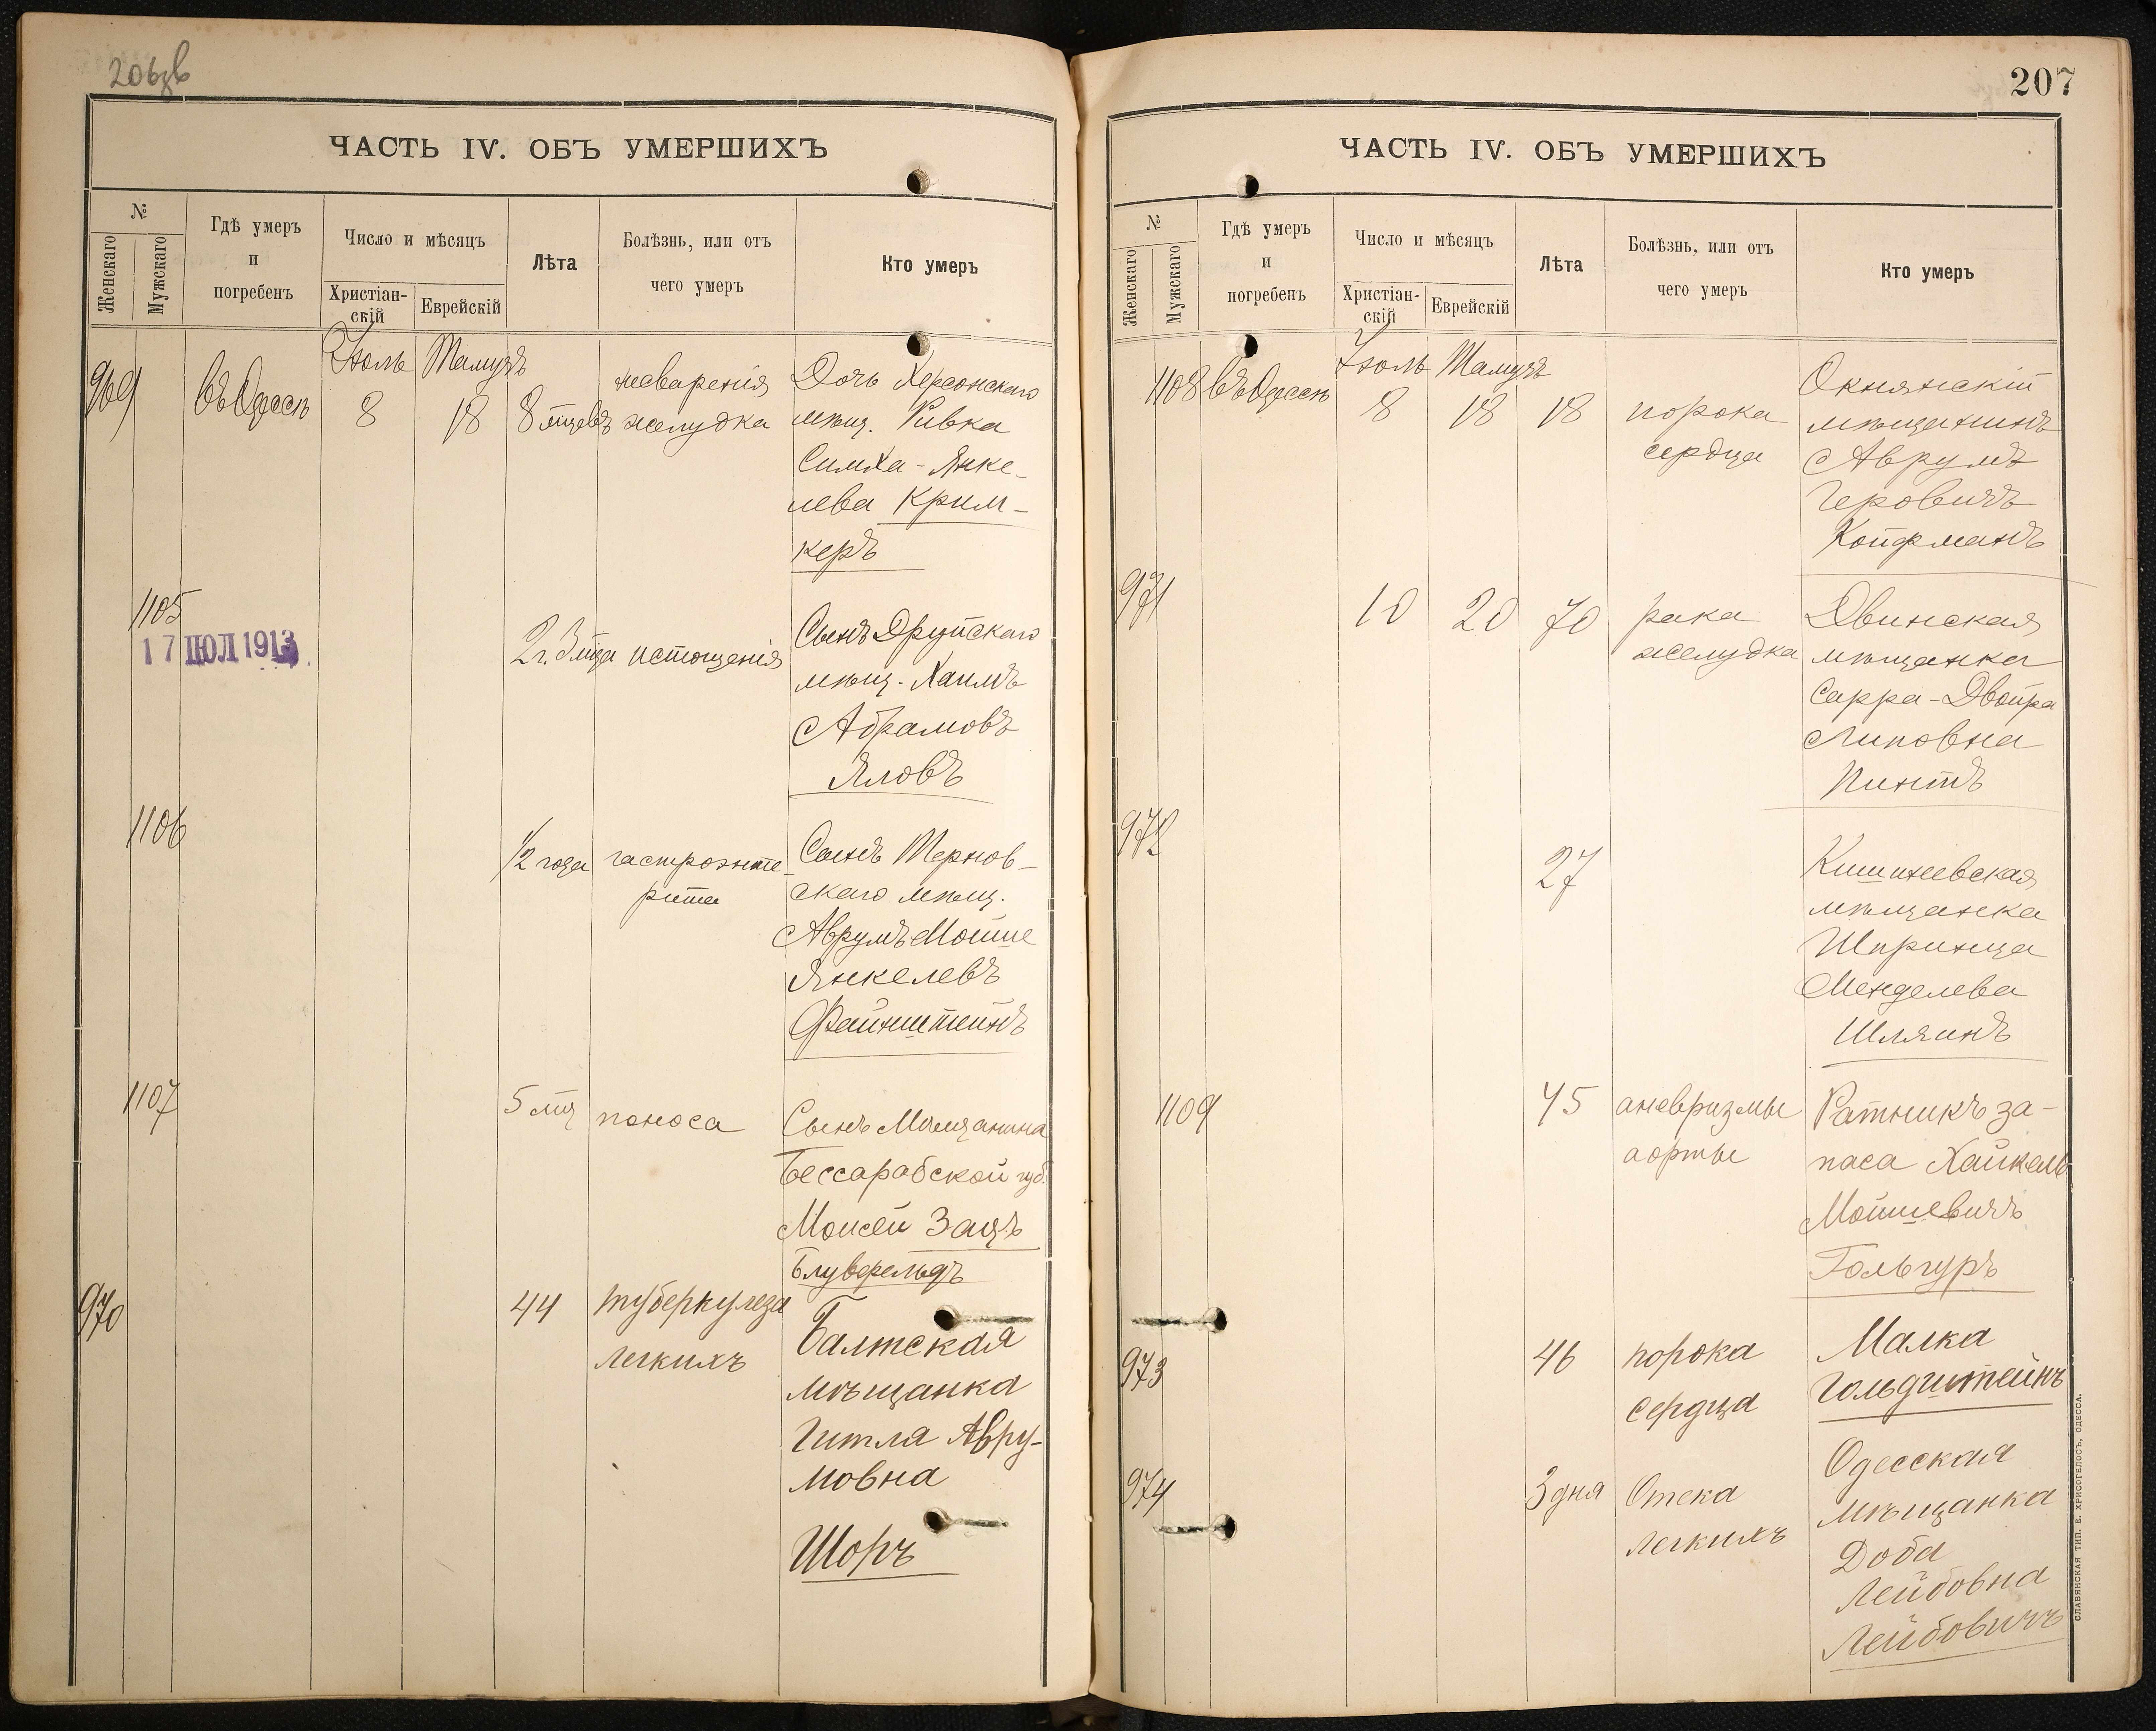 206 зв
ЧАСТЬ IV. ОБЪ УМЕРШИХЪ
№
Женскаго
Мужскаго
Гдѣ умеръ
и
погребенъ
Число и мѣсяцъ
Христіан-
скій
Еврейскій
Лѣта
Болѣзнь, или отъ
чего умеръ
Кто умеръ
969
въ Одессѣ
Іюль
8
Тамузъ
18
8 мцевъ
несваренія
желудка
Дочь Херсонскаго
мѣщ. Ривка
Симха-Янке-
лева Крим-
керъ
1105
17 ІЮЛ 1913
2 г. 3 мца
истощенія
Сынъ Друйскаго
мѣщ. Хаимъ
Абрамовъ
Яловъ
1106
1/2 года
гастроэнте-
рита
Сынъ Тернов-
скаго мѣщ.
Аврумъ Мойше
Янкелевъ
Файнштейнъ
1107
5 мц
поноса
Сынъ Мѣщанина
Бессарабской губ.
Моисей Зацъ
Блувфельдъ
970
44
туберкулеза
легкихъ
Балтская
мѣщанка
Гитля Авру-
мовна
Шоръ
207
ЧАСТЬ IV. ОБЪ УМЕРШИХЪ
№
Женскаго
Мужскаго
Гдѣ умеръ
и
погребенъ
Число и мѣсяцъ
Христіан-
скій
Еврейскій
Лѣта
Болѣзнь, или отъ
чего умеръ
Кто умеръ
1108
въ Одессѣ
Іюль
8
Тамузъ
18
18
порока
сердца
Окнянскій
мѣщанинъ
Аврумъ
Геровичъ
Койфманъ
971
10
20
70
рака
желудка
Двинская
мѣщанка
Сарра-Двойра
Липовна
Пинтъ
972
27
Кишиневская
мѣщанка
Шпринца
Менделева
Шляинъ
1109
45
аневризмы
аорты
Ратникъ за-
паса Хайкель
Мойшевичъ
Гольгуръ
973
46
порока
сердца
Малка
Гольдштейнъ
974
3 дня
Отека
легкихъ
Одесская
мѣщанка
Доба
Лейбовна
Лейбовичъ
СЛАВЯНСКАЯ ТИП. Е. ХРИСОГЕЛОСЪ, ОДЕССА.